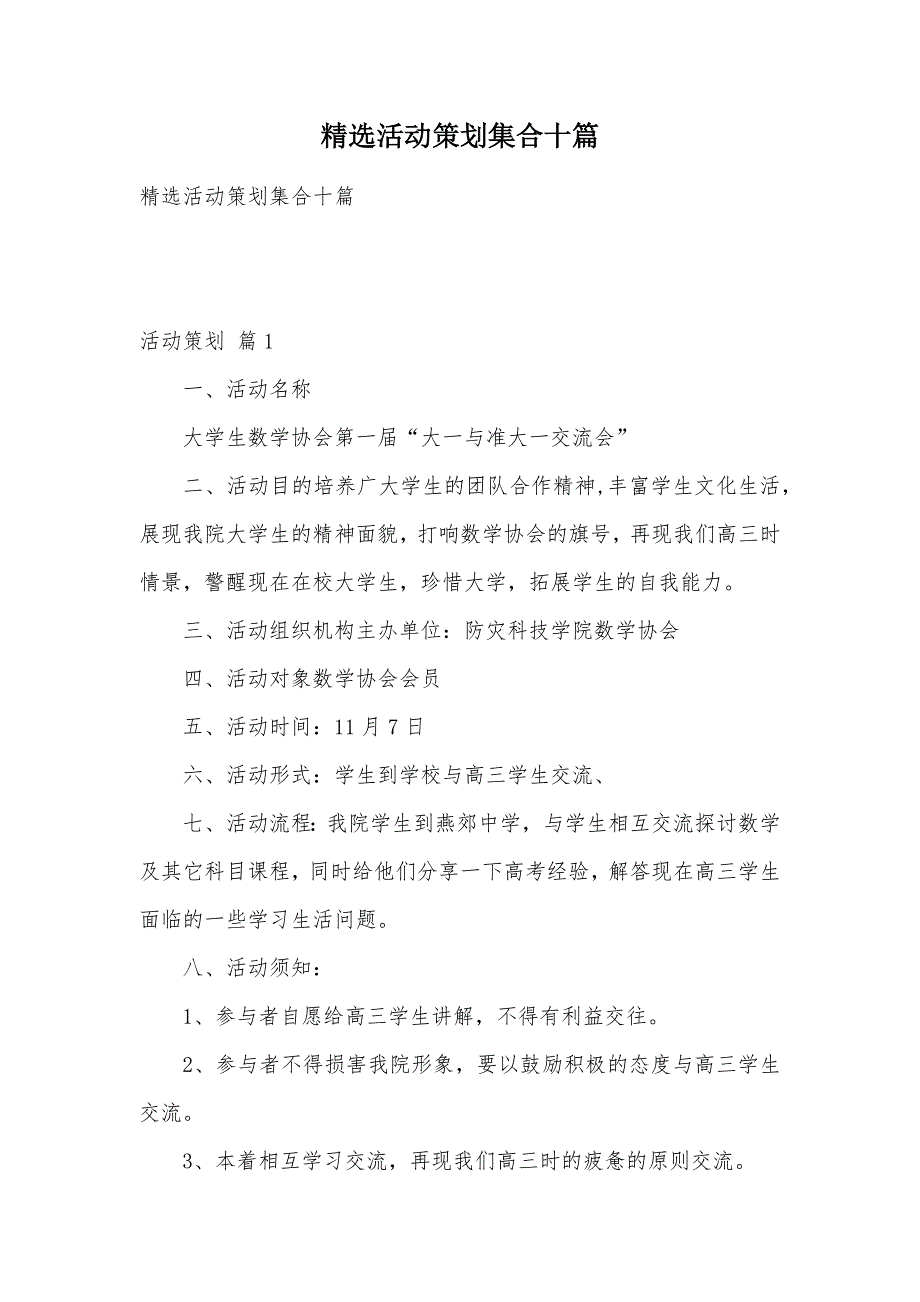 精选活动策划集合十篇
精选活动策划集合十篇
活动策划 篇1
一、活动名称
大学生数学协会第一届“大一与准大一交流会”
二、活动目的培养广大学生的团队合作精神,丰富学生文化生活，
展现我院大学生的精神面貌，打响数学协会的旗号，再现我们高三时
情景，警醒现在在校大学生，珍惜大学，拓展学生的自我能力。
三、活动组织机构主办单位：防灾科技学院数学协会
四、活动对象数学协会会员
五、活动时间：11月7日
六、活动形式：学生到学校与高三学生交流、
七、活动流程：我院学生到燕郊中学，与学生相互交流探讨数学
及其它科目课程，同时给他们分享一下高考经验，解答现在高三学生
面临的一些学习生活问题。
八、活动须知：
1、参与者自愿给高三学生讲解，不得有利益交往。
2、参与者不得损害我院形象，要以鼓励积极的态度与高三学生
交流。
3、本着相互学习交流，再现我们高三时的疲惫的原则交流。